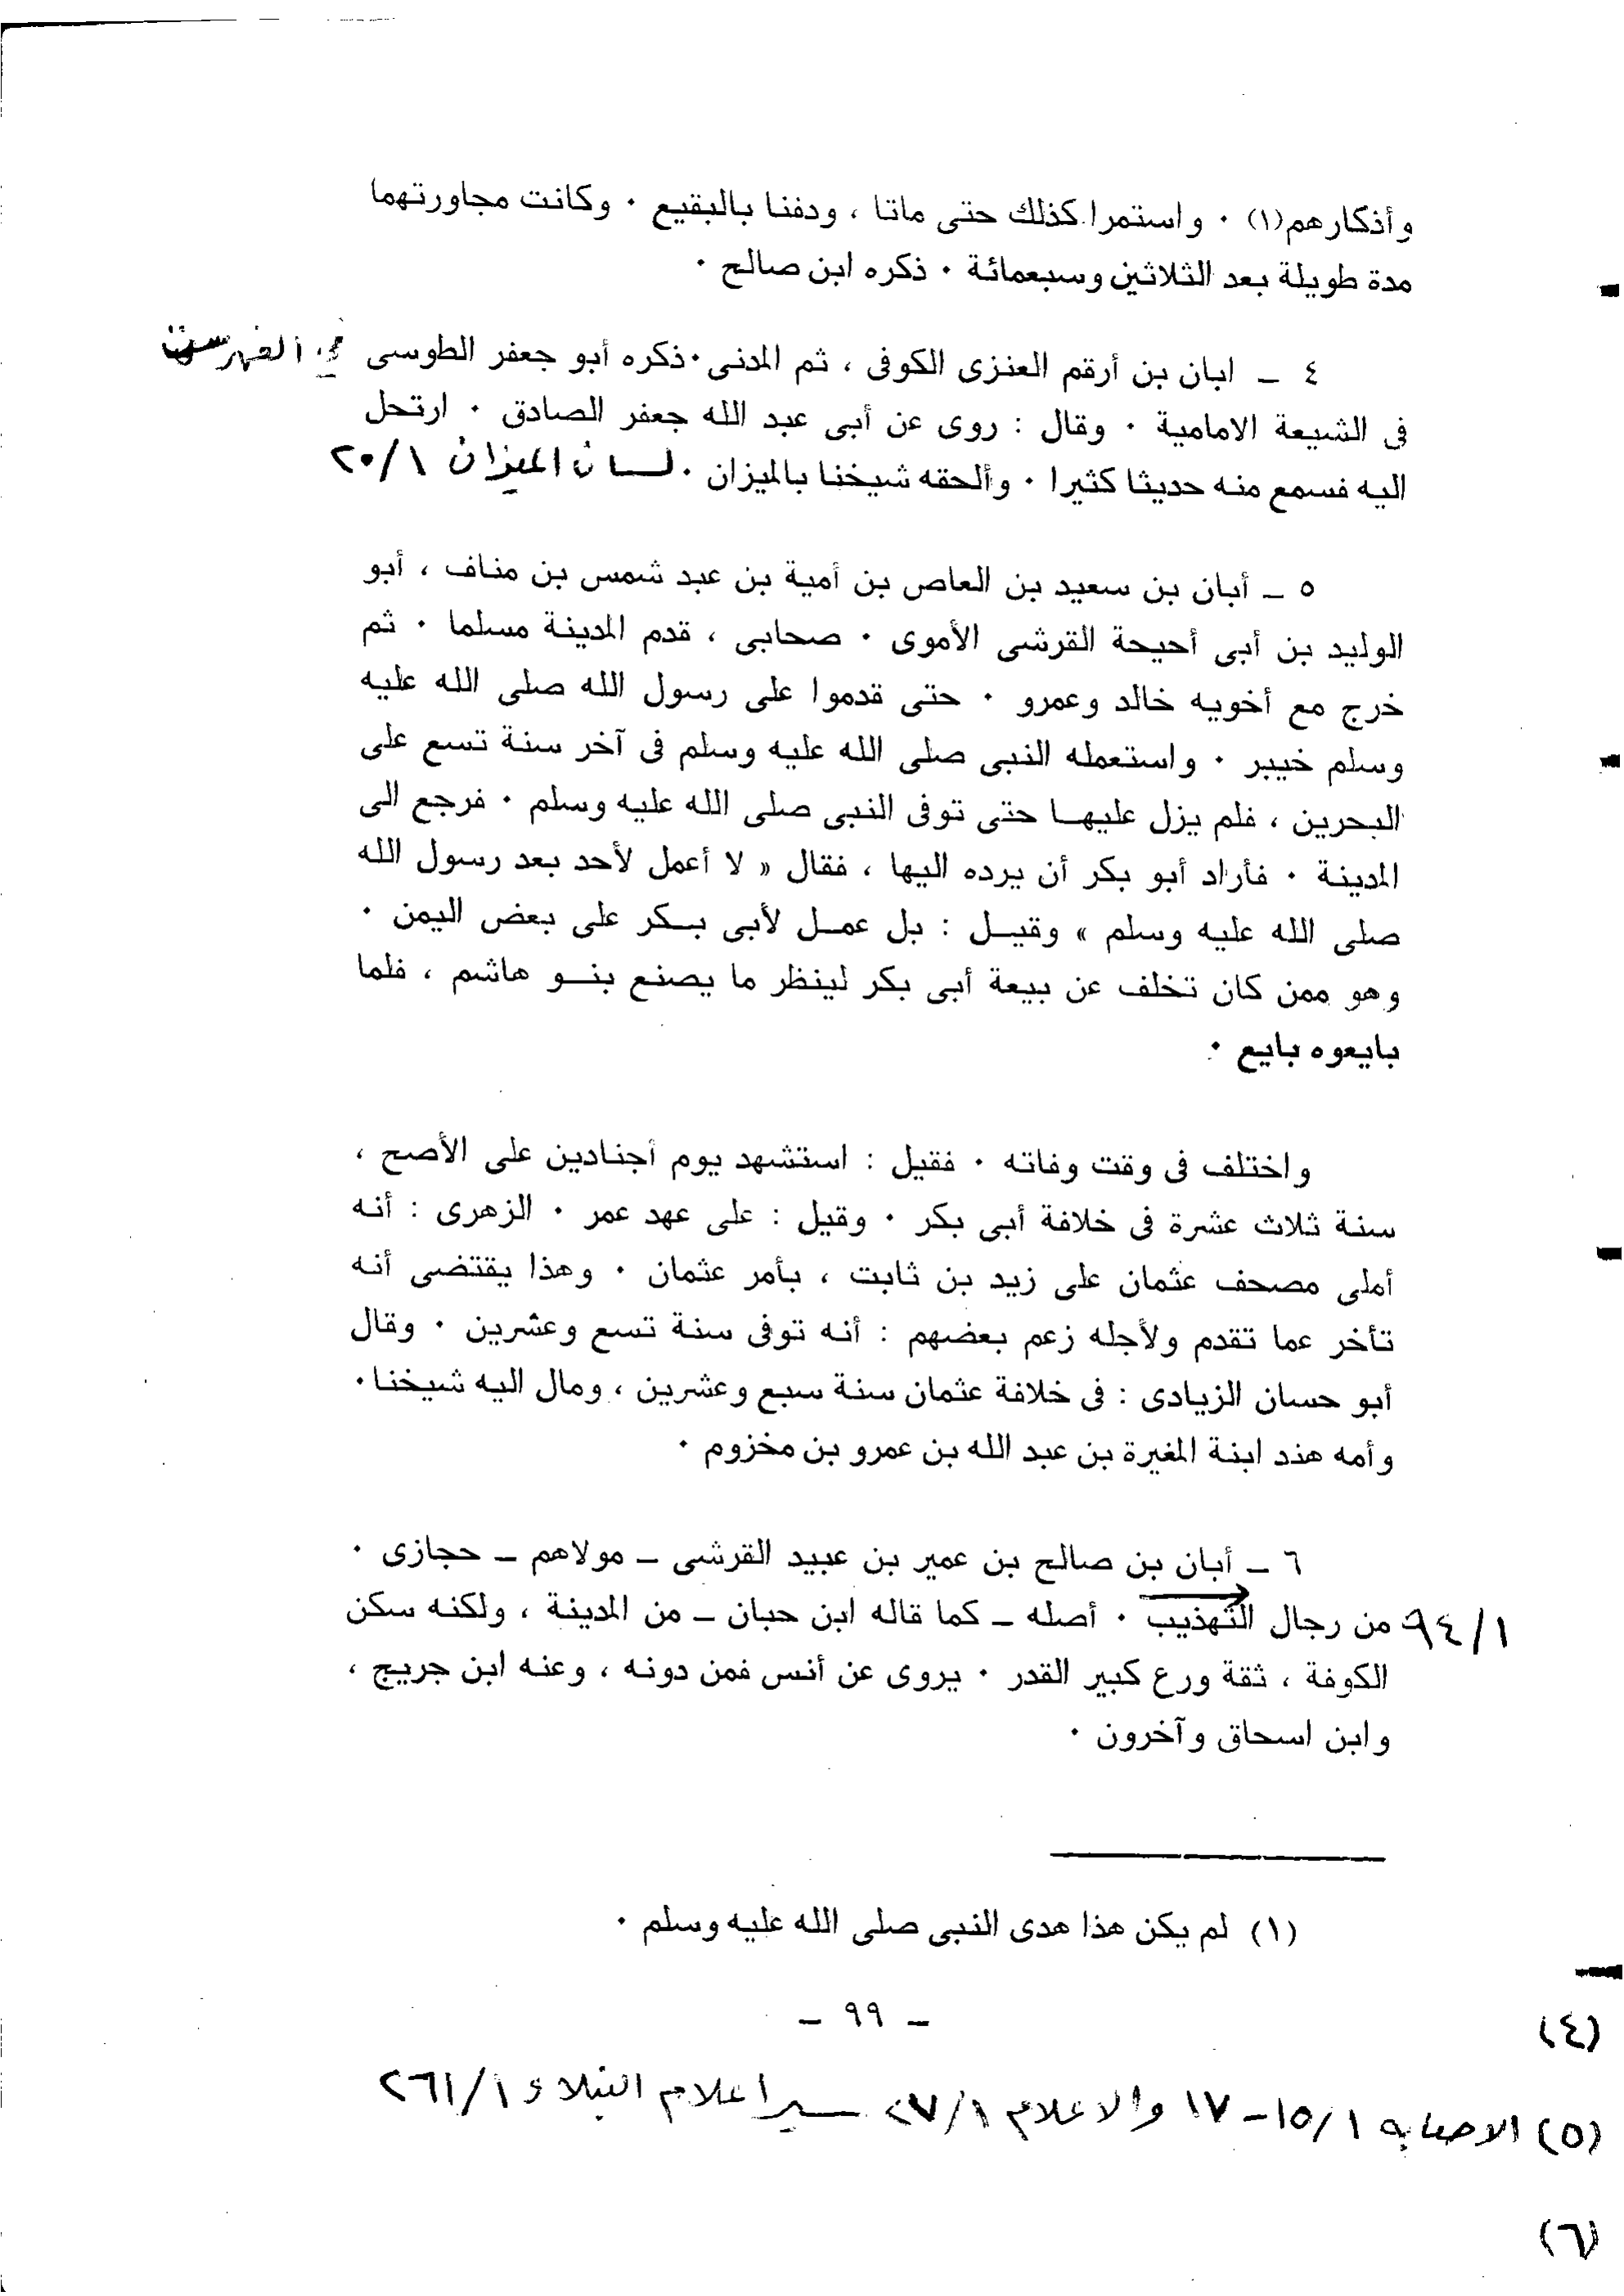 وأذكارهم(١) ٠ واستمرا كذلك حتى ماتا ، ودفنا بالبقيع ٠ وكانت مجاورتهما
مدة طويلة بعد الثلاثين وسبعمائة ٠ ذكره ابن صالح ٠
٤ ــ ابان بن أرقم العنزى الكوفى ، ثم المدنى ٠ ذكره أبو جعفر الطوسى في الفهرست
فى الشيعة الامامية ٠ وقال : روى عن أبى عبد الله جعفر الصادق ٠ ارتحل
اليه فسمع منه حديثا كثيرا ٠ وألحقه شيخنا بالميزان ٠ لسان الميزان ٢٠/١
٥ ــ أبان بن سعيد بن العاص بن أمية بن عبد شمس بن مناف ، أبو
الوليد بن أبى أحيحة القرشى الأموى ٠ صحابى ، قدم المدينة مسلما ٠ ثم
خرج مع أخويه خالد وعمرو ٠ حتى قدموا على رسول الله صلى الله عليه
وسلم خيبر ٠ واستعمله النبى صلى الله عليه وسلم فى آخر سنة تسع على
البحرين ، فلم يزل عليهـا حتى توفى النبى صلى الله عليه وسلم ٠ فرجع الى
المدينة ٠ فأراد أبو بكر أن يرده اليها ، فقال « لا أعمل لأحد بعد رسول الله
صلى الله عليه وسلم » وقيـل : بل عمـل لأبى بـكر على بعض اليمن ٠
وهو ممن كان تخلف عن بيعة أبى بكر لينظر ما يصنع بنـو هاشم ، فلما
بايعوه بايع ٠
واختلف فى وقت وفاته ٠ فقيل : استشهد يوم أجنادين على الأصح ،
سنة ثلاث عشرة فى خلافة أبى بكر ٠ وقيل : على عهد عمر ٠ الزهرى : أنه
أملى مصحف عثمان على زيد بن ثابت ، بأمر عثمان ٠ وهذا يقتضى أنه
تأخر عما تقدم ولأجله زعم بعضهم : أنه توفى سنة تسع وعشرين ٠ وقال
أبو حسان الزيادى : فى خلافة عثمان سنة سبع وعشرين ، ومال اليه شيخنا ٠
وأمه هند ابنة المغيرة بن عبد الله بن عمرو بن مخزوم ٠
٦ ــ أبان بن صالح بن عمير بن عبيد القرشى ــ مولاهم ــ حجازى ٠
٩٤/١ من رجال التهذيب ٠ أصله ــ كما قاله ابن حبان ــ من المدينة ، ولكنه سكن
الكوفة ، ثقة ورع كبير القدر ٠ يروى عن أنس فمن دونه ، وعنه ابن جريج ،
وابن اسحاق وآخرون ٠
(١) لم يكن هذا هدى النبى صلى الله عليه وسلم ٠
ــ ٩٩ ــ
(٤)
(٥) الاصابه ١٥/١ - ١٧ والاعلام ٢٧/١ سير اعلام النبلاء ٢٦١/١
(٦)